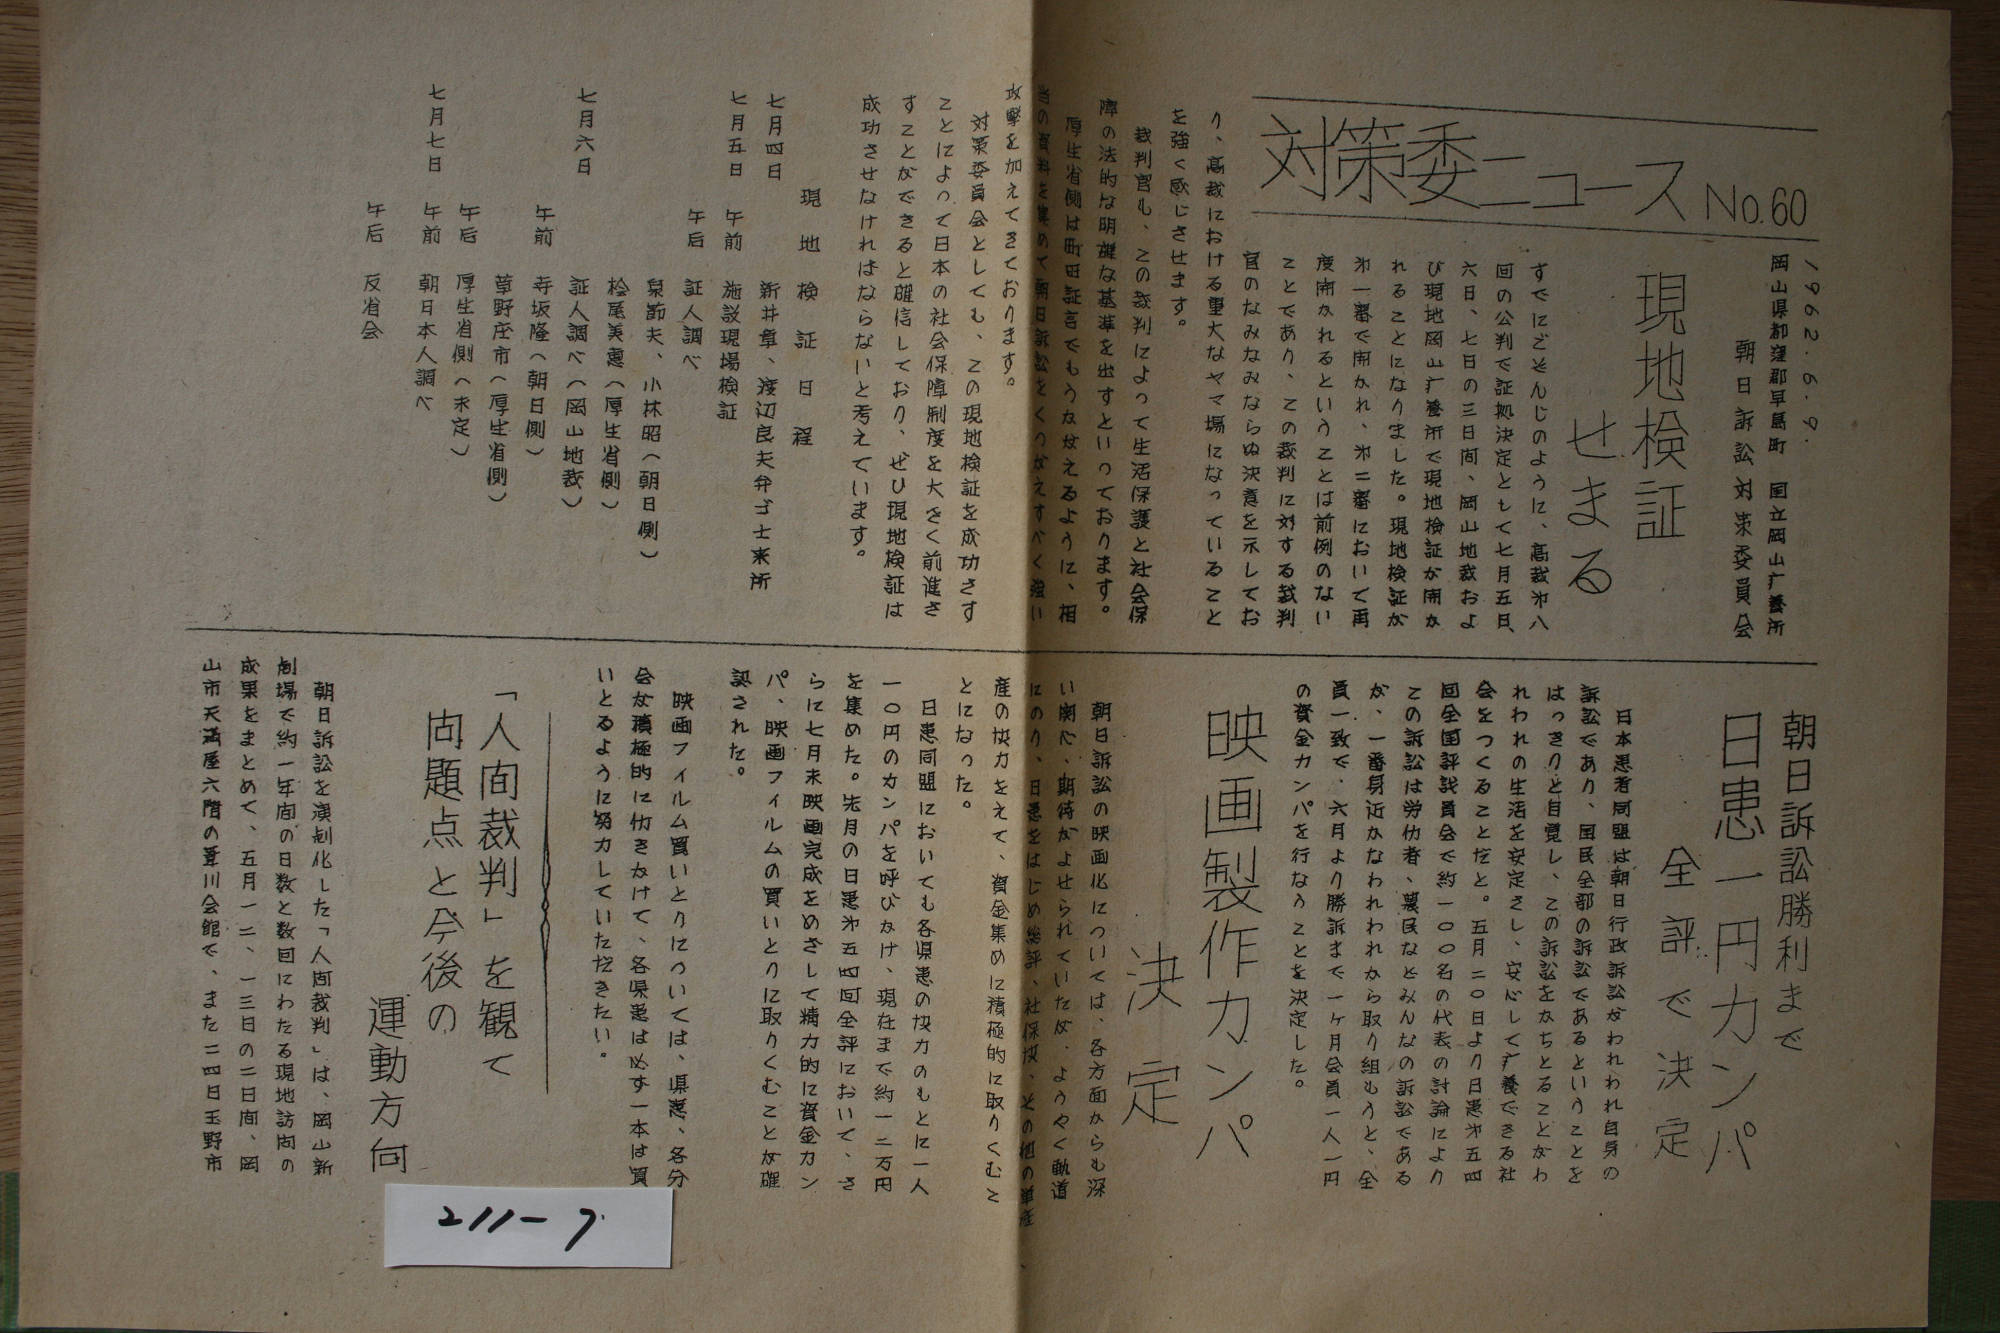 対策委ニュース No.60
1962.6.9.
岡山県都窪郡早島町 国立岡山疒養所
朝日訴訟対策委員会
現地検証
せまる
すでにごぞんじのように、高裁㐧八
回の公判で証拠決定として七月五日、
六日、七日の三日間、岡山地裁およ
び現地岡山疒養所で現地検証が開か
れることになりました。現地検証が
㐧一審で開かれ、㐧二審において再
度開かれるということは前例のない
ことであり、この裁判に対する裁判
官のなみなみならぬ決意を示してお
り、高裁における重大なヤマ場になっていること
を強く感じさせます。
裁判官も、この裁判によって生活保護と社会保
障の法的な明確な基準を出すといっております。
厚生省側は町田証言でもうかがえるように、相
当の資料を集めて朝日訴訟をくつがえすべく強い
攻撃を加えてきております。
対策委員会としても、この現地検証を成功さす
ことによって日本の社会保障制度を大きく前進さ
すことができると確信しており、ぜひ現地検証は
成功させなければならないと考えています。
現地検証日程
七月四日 新井章、渡辺良夫弁ゴ士来所
七月五日 午前 施設現場検証
午后 証人調べ
泉節夫、小林昭(朝日側)
桧尾美恵(厚生省側)
七月六日 証人調べ(岡山地裁)
午前 寺坂隆(朝日側)
草野庄市(厚生省側)
午后 厚生省側(未定)
七月七日 午前 朝日本人調べ
午后 反省会
朝日訴訟勝利まで
日患一円カンパ
全評で決定
日本患者同盟は朝日行政訴訟がわれわれ自身の
訴訟であり、国民全部の訴訟であるということを
はっきりと自覚し、この訴訟をかちとることがわ
れわれの生活を安定さし、安心して疒養できる社
会をつくることだと。五月二〇日より日患㐧五四
回全国評議員会で約一〇〇名の代表の討論により
この訴訟は労仂者、農民などみんなの訴訟である
が、一番身近かなわれわれから取り組もうと、全
員一致で、六月より勝訴まで一ヶ月会員一人一円
の資金カンパを行なうことを決定した。
映画製作カンパ
決定
朝日訴訟の映画化については、各方面からも深
い関心、期待がよせられていたが、ようやく軌道
にのり、日患をはじめ総評、社保協、その他の単産
産の協力をえて、資金集めに積極的に取りくむこ
とになった。
日患同盟においても各県患の協力のもとに一人
一〇円のカンパを呼びかけ、現在まで約一二万円
を集めた。先月の日患㐧五四回全評において、さ
らに七月末映画完成をめざして精力的に資金カン
パ、映画フィルムの買いとりに取りくむことが確
認された。
映画フィルム買いとりについては、県患、各分
会が積極的に仂きかけて、各県患は必ず一本は買
いとるように努力していただきたい。
「人間裁判」を観て
问題点と今後の
運動方向
朝日訴訟を演劇化した「人間裁判」は、岡山新
劇場で約一年间の日数と数回にわたる現地訪问の
成果をまとめて、五月一二、一三日の二日間、岡
山市天満屋六階の葦川会館で、また二四日玉野市
211-7